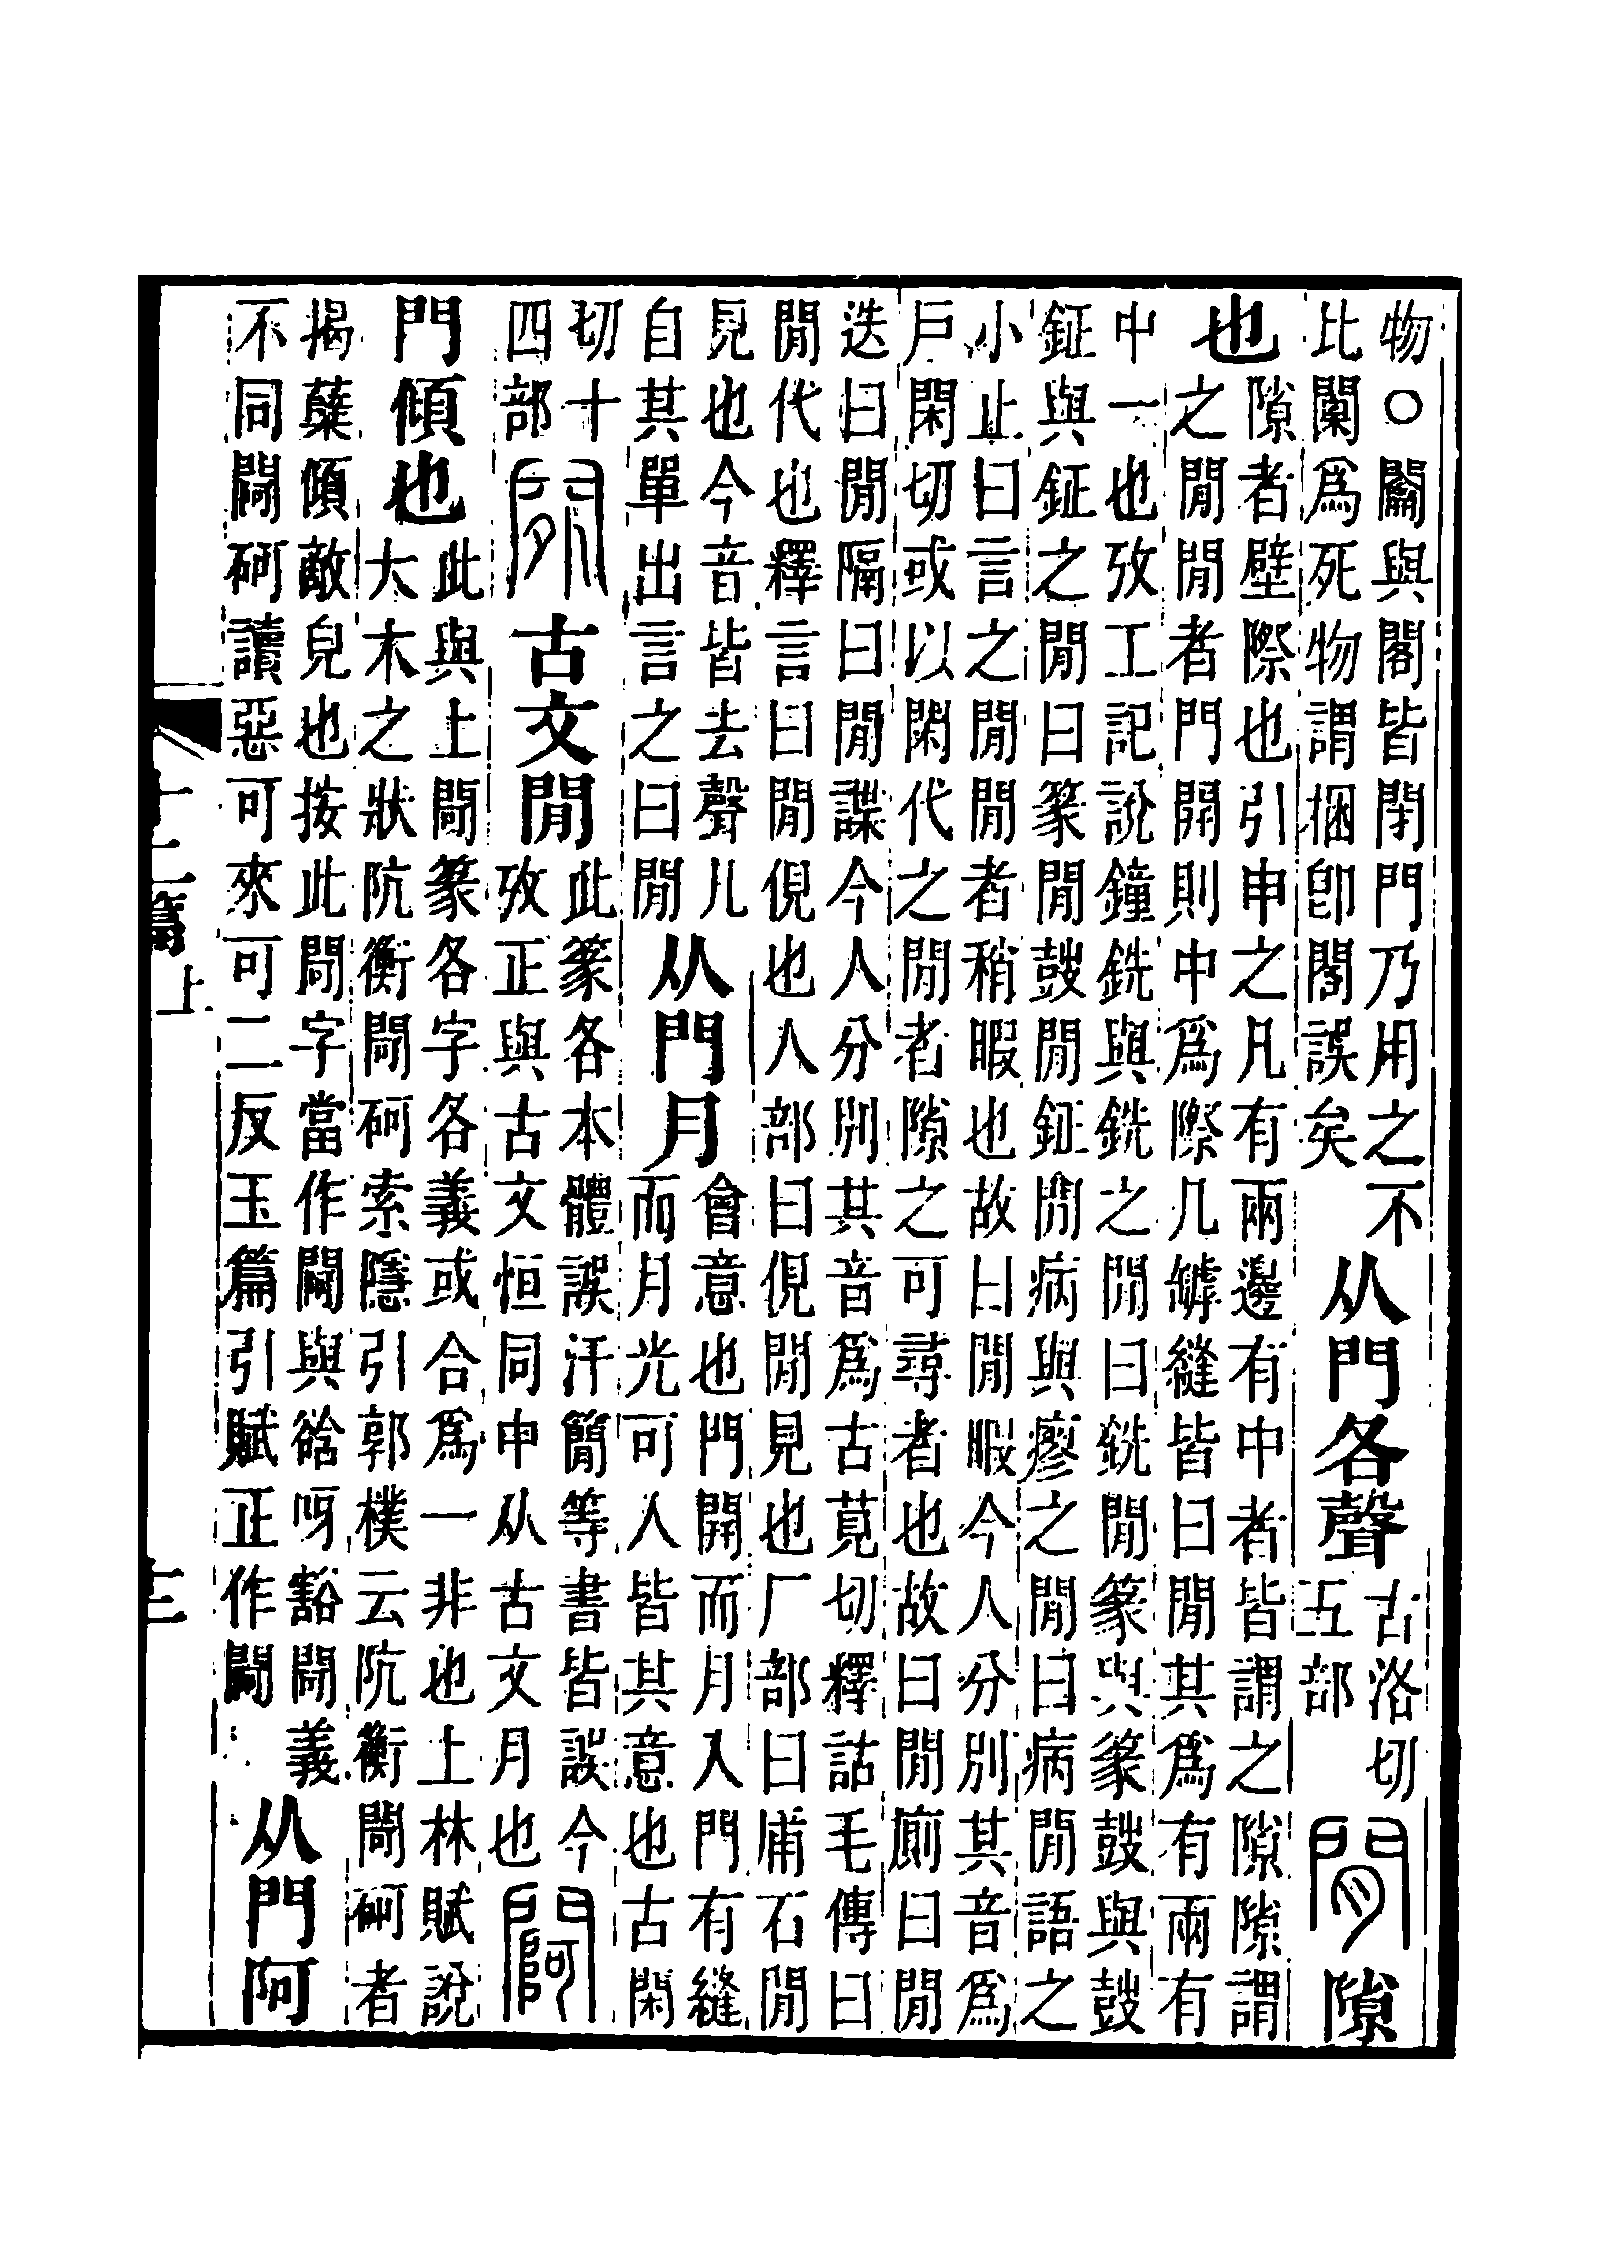 物○關與閣皆閉門乃用之不
比闑爲死物謂梱卽閣誤矣
从門各聲
古洛切
五部
閒隙
也
隙者壁際也引申之凡有兩邊有中者皆謂之隙隙謂
之閒閒者門開則中爲際凡罅縫皆曰閒其爲有兩有
中一也攷工記說鐘銑與銑之閒曰銑閒篆與篆鼓與鼓
鉦與鉦之閒曰篆閒鼓閒鉦閒病與瘳之閒曰病閒語之
小止曰言之閒閒者稍暇也故曰閒暇今人分別其音爲
戸閑切或以閑代之閒者隙之可尋者也故曰閒廁曰閒
迭曰閒隔曰閒諜今人分別其音爲古莧切釋詁毛傳曰
閒代也釋言曰閒俔也人部曰俔閒見也厂部曰㕊石閒
見也今音皆去聲凡
自其單出言之曰閒
从門月
會意也門開而月入門有縫
而月光可入皆其意也古閑
切十
四部
古文閒
此篆各本體誤汗簡等書皆誤今
攷正與古文恒同中从古文月也
䦪
門傾也
此與上閜篆各字各義或合爲一非也上林賦說
大木之狀阬衡閜砢索隱引郭樸云阬衡閜砢者
揭蘖傾敧皃也按此閜字當作䦪與谽呀豁閜義
不同閜砢讀惡可來可二反玉篇引賦正作䦪
从門阿
十二篇上